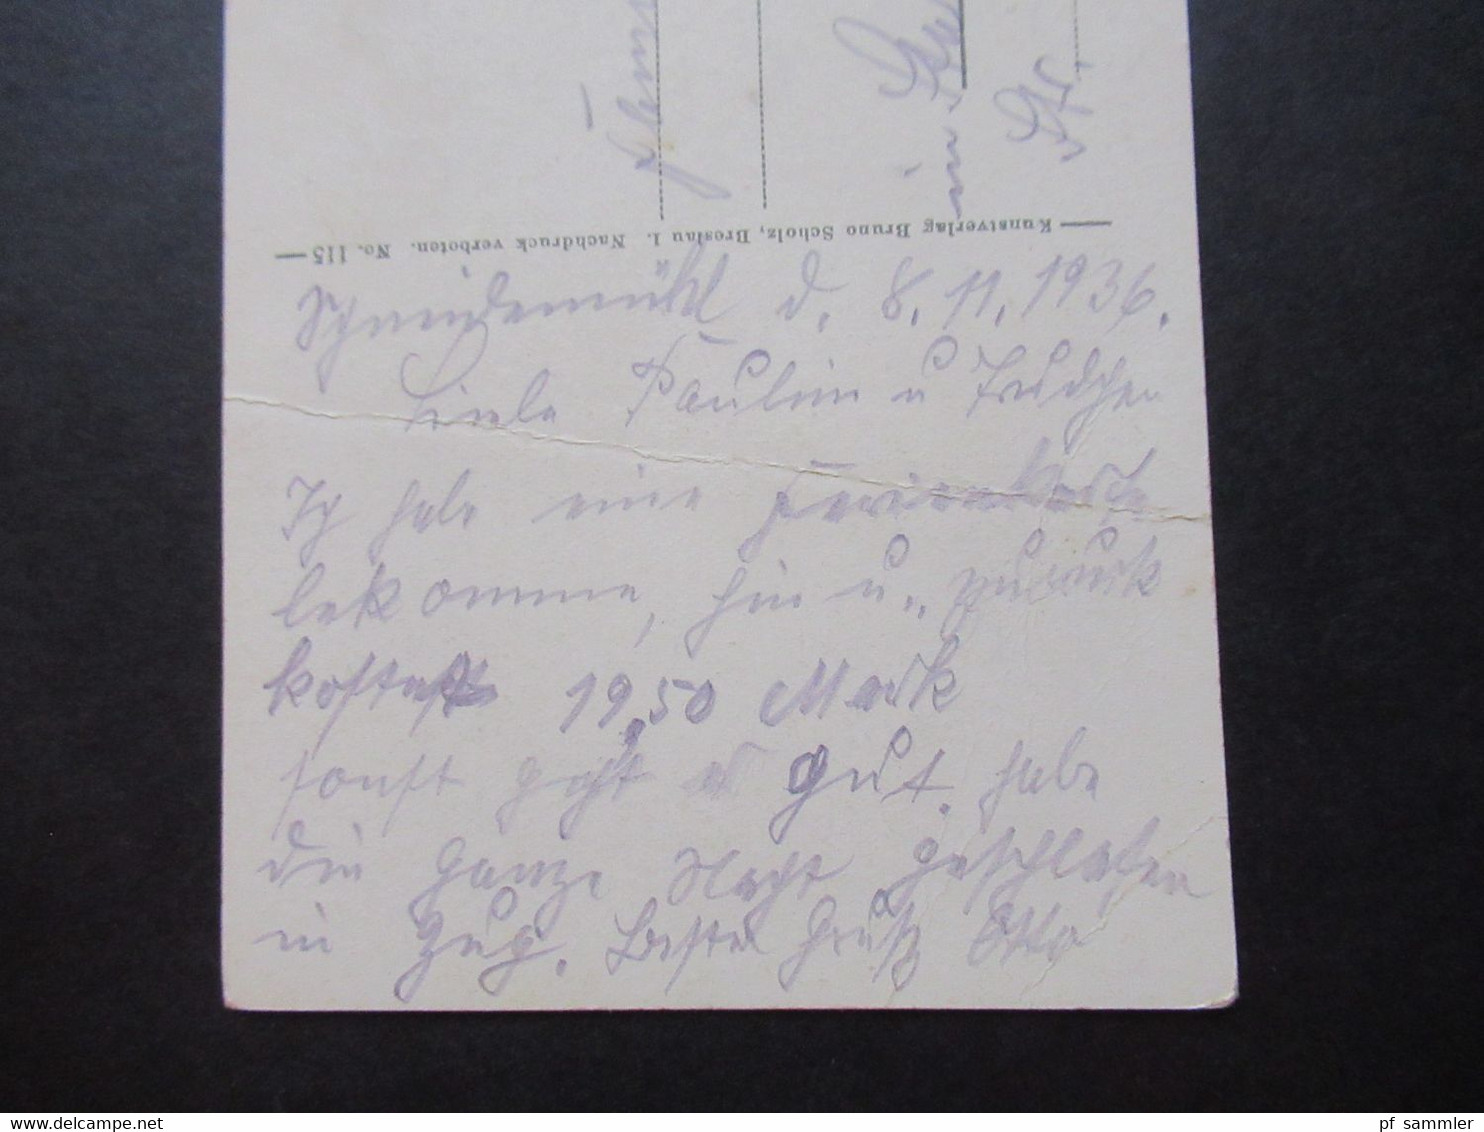 Kunstverlag Bruno Scholz, Breslau 1. Nachdruck verboten. No. 115
Schneidemühl d. 8.11.1936.
Liebe Paulin u Trudchen
Ich habe eine Ferienkarte
bekomme, hin u. zuruck
kostet 19,50 Mark
sonst geht es gut. habe
die ganze Nacht geschlafen
in Zug. Besten Gruß Otto
www.delcampe.net
pf_sammler